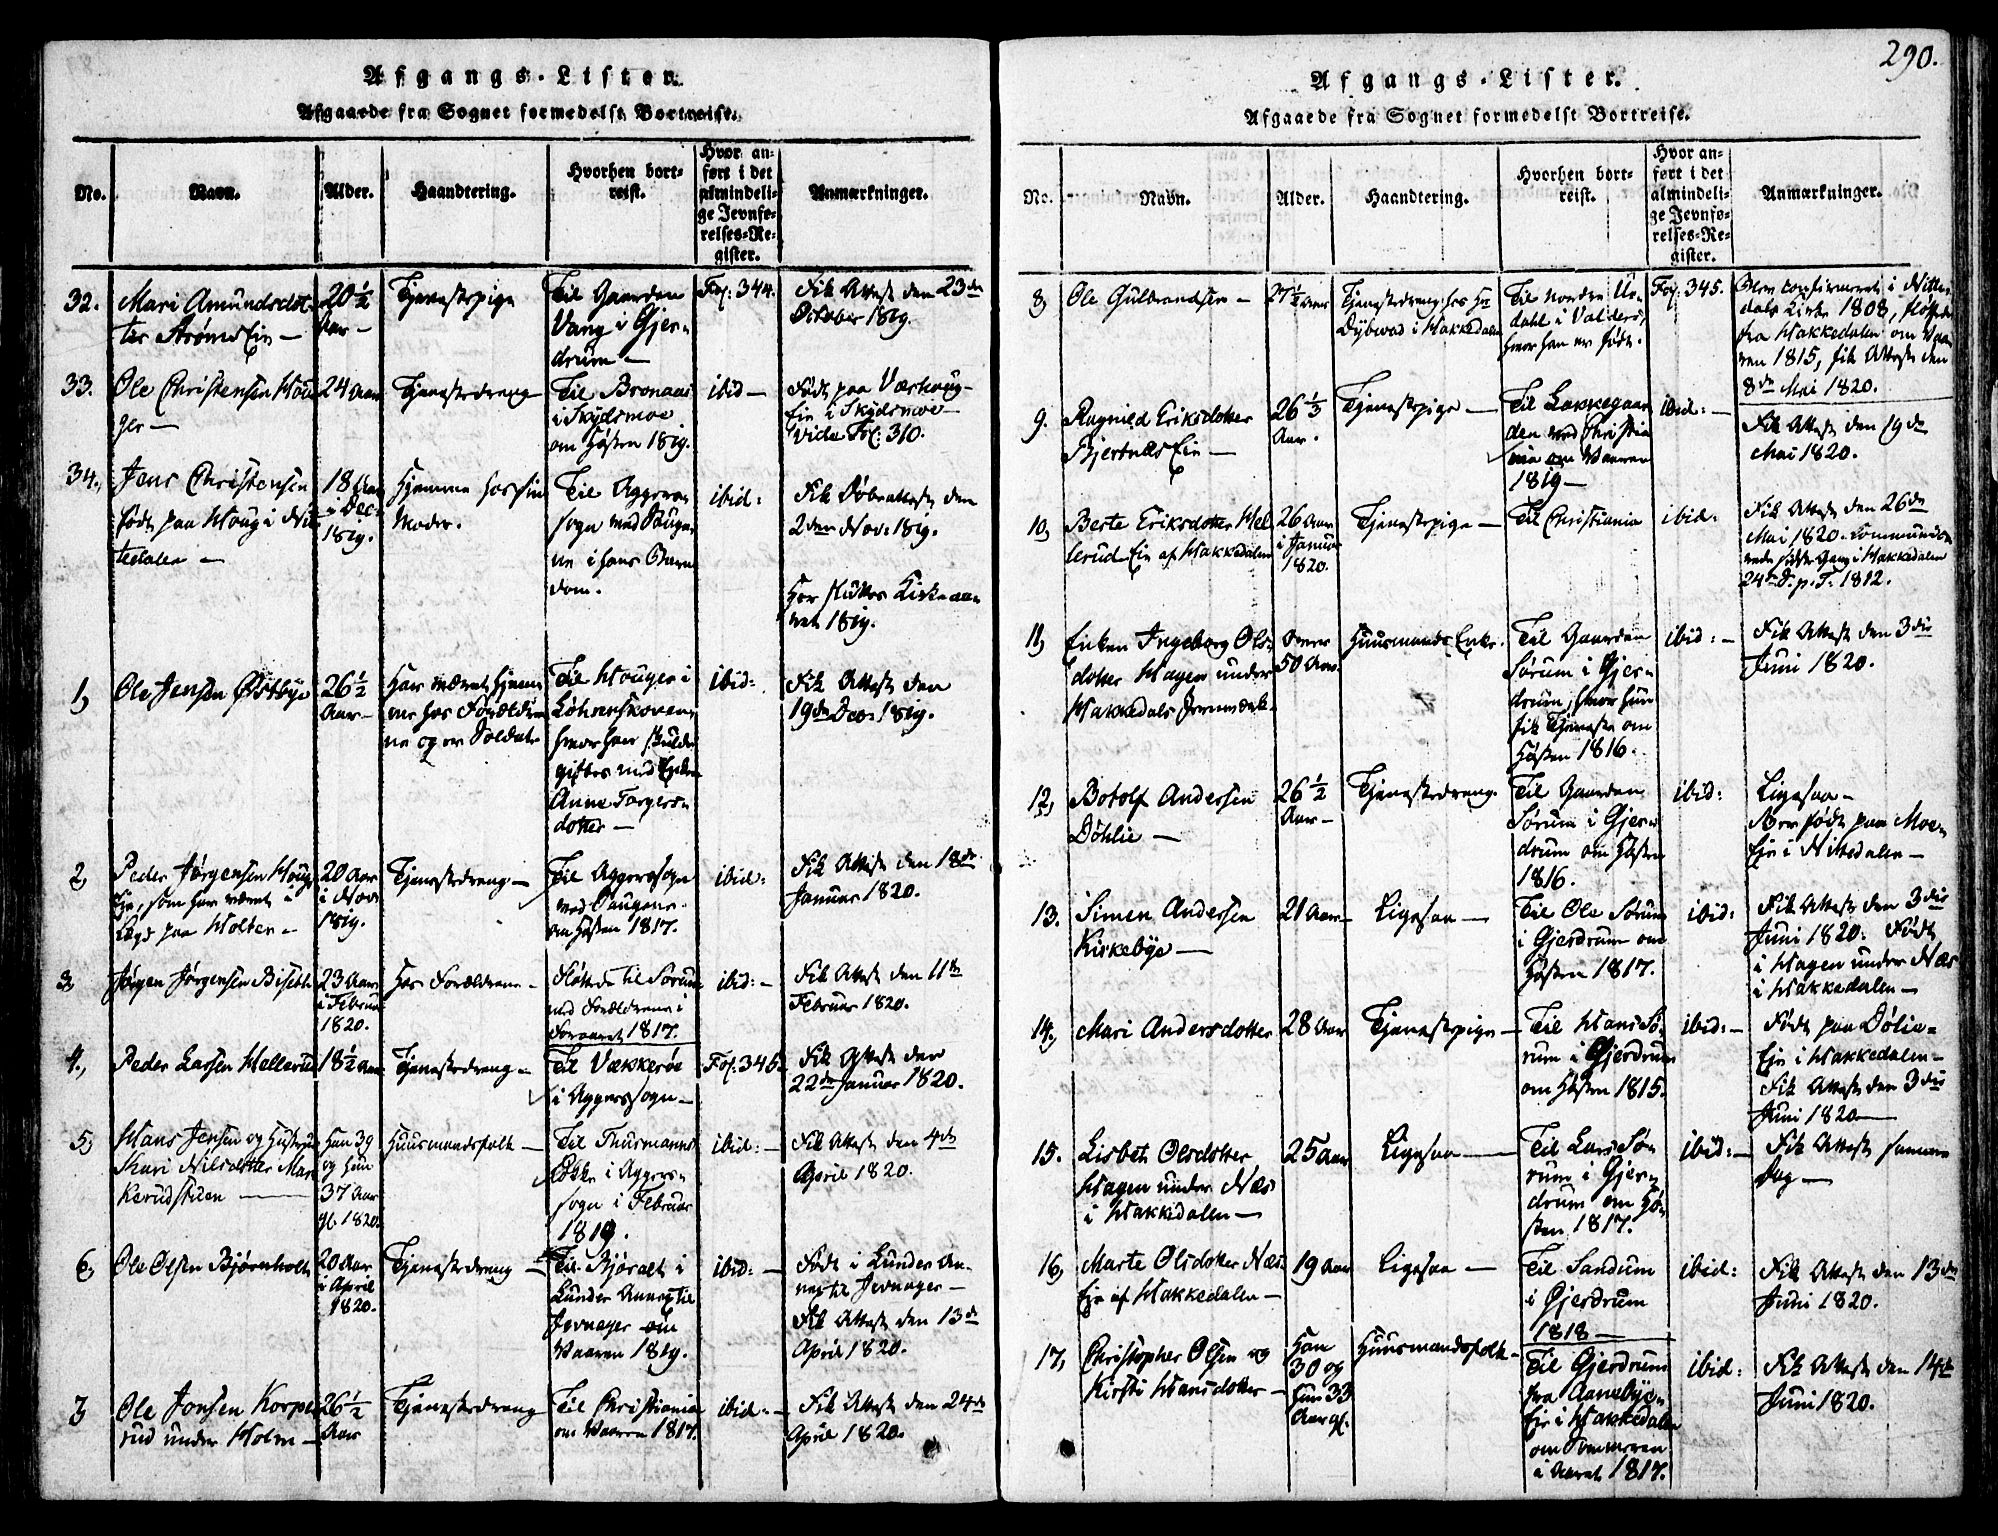 Afgangs-Lister.
Afgaaede fra Sognet formedelst Bortreise.
No.
Navn.
Alder.
Haandtering.
Hvorhen bort-
reist.
Hvor an-
ført i det
almindeli-
ge Jevnfø-
relses-Re-
gister.
Anmærkninger.
32.
Mari Amundsdot-
ter Strøms Eie —
20 1/2
Aar —
Tjenestepige
Til Gaarden
Vang i Gjer-
drum —
Fol: 344.
Fik Attest den 23de
October 1819.
33.
Ole Christensen Hou-
ger —
24 Aar
Tjenestedreng
Til Bronaas
i Skydsmoe
om Høsten 1819.
ibid —
Født paa Værhoug-
Eie i Skydsmoe —
vide Fol: 310.
34.,
Jens Christensen
født paa Houg i Nit-
tedalen —
18 Aar
i Dec:
1819.
Hjemme hos sin
Moder.
Til Aggers
sogn med Sauge-
ne i hans Barn-
dom.
ibid:
Fik Døbeattest den
2den Nov: 1819.
Her sluttes Kirkeaa-
ret 1819.
1,
Ole Jensen Østbye
26 1/2
Aar —
Har været hjem-
me hos Forældre-
ne og er Soldat.
Til Houger i
Løhrenskoven,
hvor han skulde
giftes med Enken
Anne Torgers-
dotter —
ibid:
Fik Attest den
19de Dec: 1819.
2,
Peder Jørgensen Houg-
Eje, som har været i
Lægd paa Holter —
20 Aar
i Nov:
1819.
Tjenestedreng —
Til Aggerssogn
med Saugene
om Høsten 1817.
ibid:
Fik Attest den 18de
Januar 1820.
3,
Jørgen Jørgensen Biseth
23 Aar
i Februar
1820.
Hos Forældrene —
Fløttede til Sørum
med Forældrene i
Foraaret 1817.
ibid: —
Fik Attest den 11te
Februar 1820.
4.,
Peder Larsen Hellerud
18 1/2 Aar
Tjenestedreng —
Til Vækkerøe
i Aggerssogn —
Fol: 345.
Fik Attest den
22de Januar 1820.
5,
Hans Jensen og Hustrue
Kari Nilsdotter Mar-
kerudstuen —
Han 39
og Hun
37 Aar
gl. 1820.
Huusmandsfolk —
Til Thurmanns
Løkke i Aggers-
sogn i Februar
1819.
ibid: —
Fik Attest den 4de
April 1820.
6,
Ole Olsen Bjørnholt
20 Aar
i April
1820.
Tjenestedreng —
Til Bjøralt i
Lunder Annex til
Jevnager om
Vaaren 1819.
ibid: —
Født i Lunder An-
nex til Jevnager —
Fik Attest den 13de
April 1820.
7
Ole Jonsen Korpe-
rud under Holm —
26 1/2
Aar
Tjenestedreng
Til Christiania
om Vaaren 1817.
ibid: —
Fik Attest den 24de
April 1820.
290.
Afgangs-Lister.
Afgaaede fra Sognet formedelst Bortreise.
No.
Navn.
Alder.
Haandtering.
Hvorhen bort-
reist.
Hvor an-
ført i det
almindeli-
ge Jevnfø-
relses-Re-
gister.
Anmærkninger.
8,
Ole Gulbrandsen —
27 1/2 Aar
Tjenestedreng hos Hr
Dybwad i Hakkedalen
Til Nordre Ur-
dahl i Valders,
hvor han er født.
Fol: 345.
Blev confirmeret i Nitte-
dals Kirke 1808, fløttede
fra Hakkedalen om Vaa-
ren 1815, fik Attest den
8de Mai 1820.
9.
Ragnild Eriksdotter
Bjertnæs Eie —
26 1/3
Aar.
Tjenestepige —
Til Lakkegaar-
den ved Christia-
nia om Vaaren
1819 —
ibid: —
Fik Attest den 19de
Mai 1820.
10,
Berte Eriksdotter Hel-
lerud Eie af Hakkedalen
26 Aar
i Januar
1820.
Tjenestepige —
Til Christiania
ibid:
Fik Attest den 26de
Mai 1820. Communice-
rede sidste Gang i Hakkedalen
24de D. p. T. 1812.
11,
Enken Ingeborg Ols-
dotter Hagen under
Hakkedals Jernværk
Over
50 Aar
Huusmands Enke.
Til Gaarden
Sørum i Gjer-
drum, hvor hun
fik Tjeneste om
Høsten 1816.
ibid: —
Fik Attest den 3die
Juni 1820.
12,
Botolf Andersen
Döhlie —
26 1/2
Aar —
Tjenestedreng.
Til Gaarden
Sørum i Gjer-
drum om Høsten
1816.
ibid:
Ligesaa —
Er født paa Moe-
Eje i Nittedalen —
13.
Simen Andersen
Kirkebye —
21 Aar —
Ligesaa —
Til Ole Sørum
i Gjerdrum om
Høsten 1817.
ibid:
Fik Attest den 3die
Juni 1820. Født
i Hagen under Næs
i Hakkedalen —
14.,
Mari Andersdotter
28 Aar
Tjenestepige —
Til Hans Sø-
rum i Gjerdrum
om Høsten 1815.
ibid: —
Født paa Dölie-
Eje i Hakkedalen —
Fik Attest den 3die
Juni 1820 —
15.
Lisbeth Olsdotter
Hagen under Næs
i Hakkedalen —
25 Aar
Ligesaa —
Til Lars Sø-
rum i Gjer-
drum om Hø-
sten 1817.
ibid: —
Fik Attest samme
Dag —
16,
Marte Olsdotter Næs-
Eje af Hakkedalen —
19 Aar
Ligesaa —
Til Sandum
i Gjerdrum
1818 —
ibid:
Fik Attest den 13de
Juni 1820.
17,
Christopher Olsen og
Kirsti Hansdotter —
Han
30 og
hun 33
Aar gl.
Huusmandsfolk —
Til Gjerdrum
fra Aanebye-
Eje i Hakkedalen
om Sommeren
i Aaret 1817.
ibid:
Fik Attest den 14de
Juni 1820.